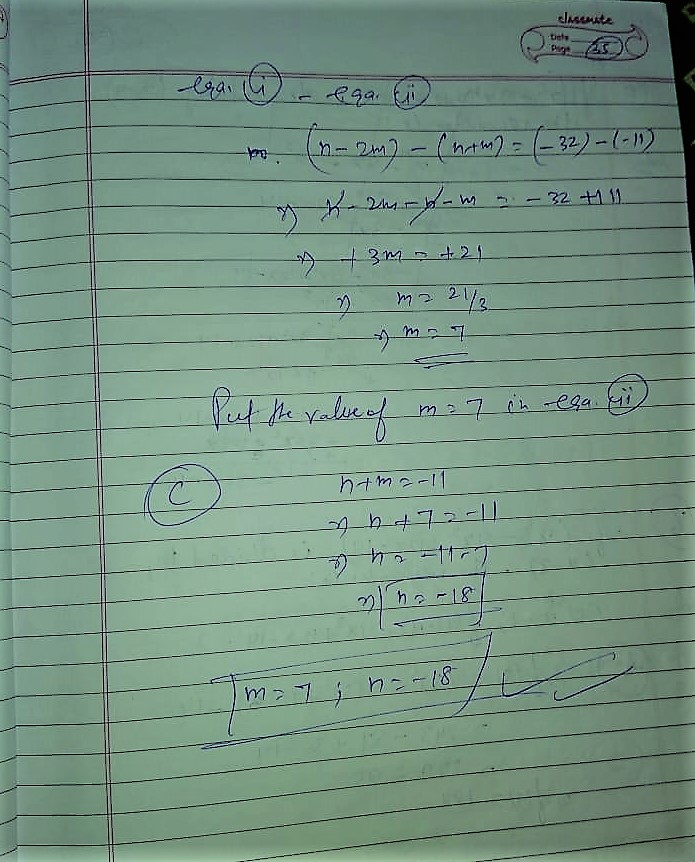 classmate
Date
Page 35
eqn. (i) - eqn. (ii)
(n - 2m) - (n+m) = (-32) - (-11)
⇒ n - 2m - n - m = -32 + 11
⇒ +3m = +21
⇒ m = 21/3
⇒ m = 7
Put the value of m = 7 in eqn. (ii)
C
n+m = -11
⇒ n + 7 = -11
⇒ n = -11 - 7
⇒ n = -18
m = 7 ; n = -18